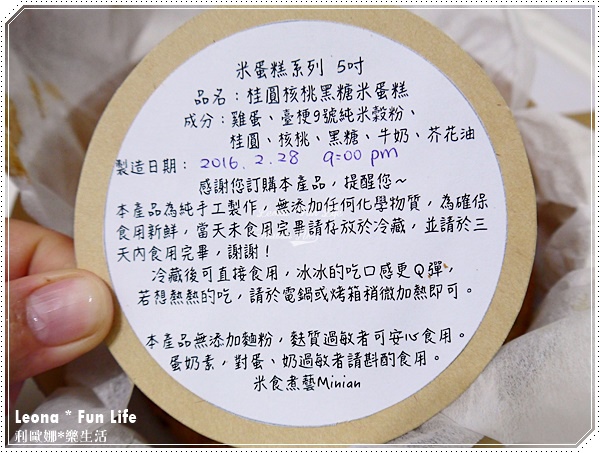 米蛋糕系列 5吋
品名：桂圓核桃黑糖米蛋糕
成分：雞蛋、臺梗9號純米穀粉、
桂圓、核桃、黑糖、牛奶、芥花油
製造日期： 2016.2.28 9:00 pm
感謝您訂購本產品，提醒您~
本產品為純手工製作，無添加任何化學物質，為確保
食用新鮮，當天未食用完畢請存放於冷藏，並請於三
天內食用完畢，謝謝！
冷藏後可直接食用，冰冰的吃口感更Ｑ彈，
若想熱熱的吃，請於電鍋或烤箱稍微加熱即可。
本產品無添加麵粉，麩質過敏者可安心食用。
蛋奶素，對蛋、奶過敏者請斟酌食用。
米食煮藝Minian
Leona * Fun Life
利歐娜*樂生活